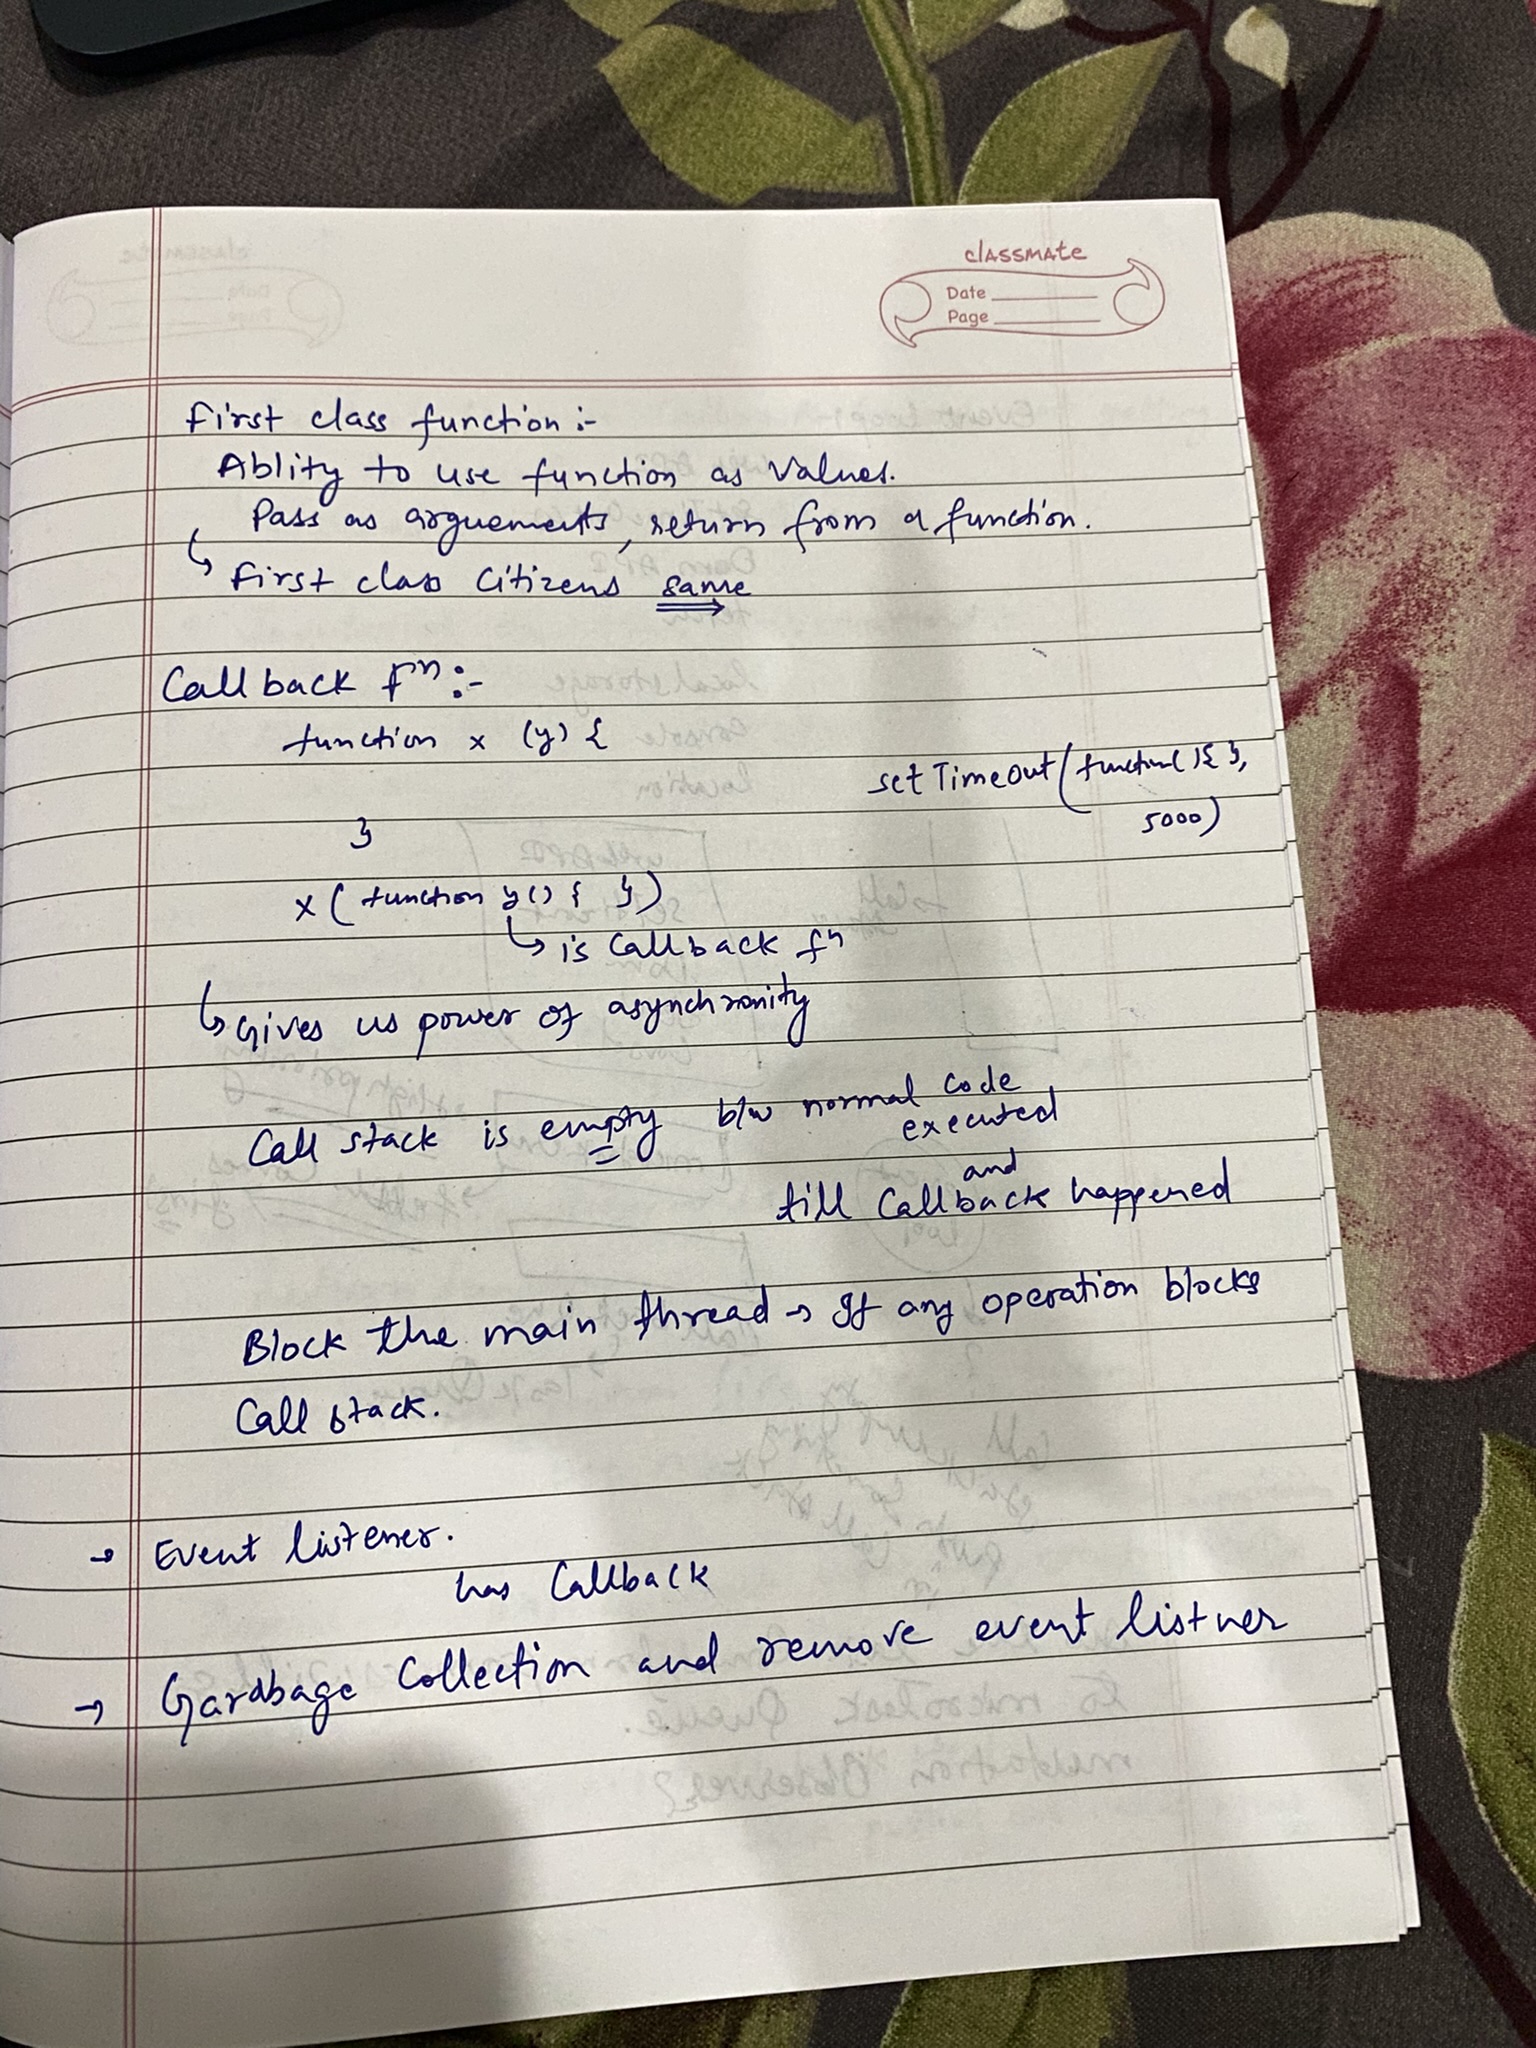 classmate
Date
Page
First class function :-
Ablity to use function as Values.
Pass as arguements, return from a function.
↳ First class Citizens same
Call back fⁿ :-
function x (y) {
}
setTimeOut(function(){ },
5000)
x ( function y() { })
↳ is Callback fⁿ
↳ Gives us power of asynchronity
Call stack is empty b/w normal code
executed
and
till Callback happened
Block the main thread → If any operation blocks
Call stack.
→ Event listener.
has Callback
→ Gardbage Collection and remove event listner